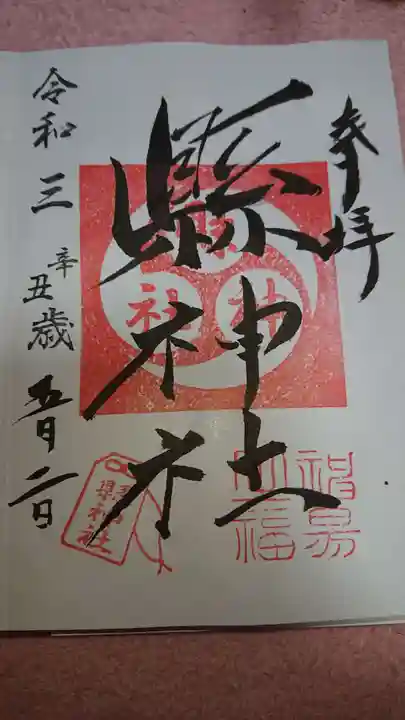 奉拝
縣神社
縣神社
令和三辛丑歳五月二日
縣神社
賜皇大福